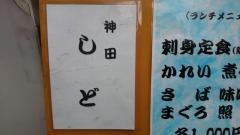 神田
しど
(ランチメニュ
刺身定食
かれい煮
さば味
まぐろ照
各1,000